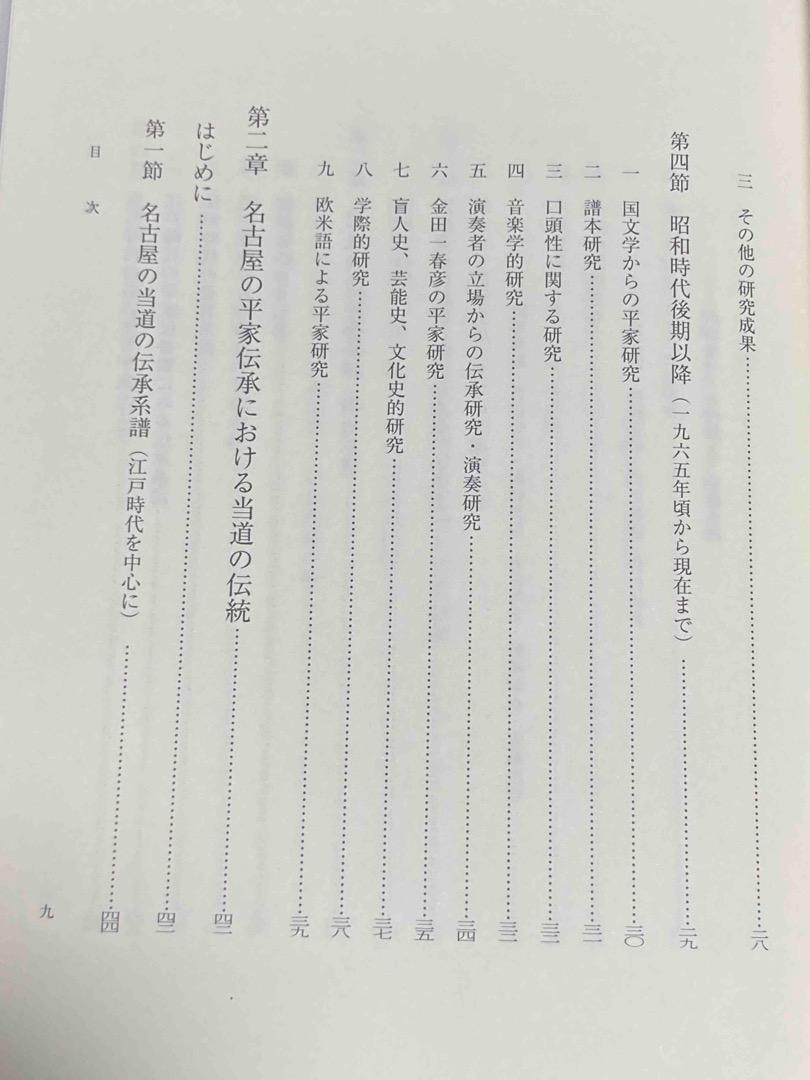 三 その他の研究成果……二八
第四節 昭和時代後期以降（一九六五年頃から現在まで）……二九
一 国文学からの平家研究……三〇
二 譜本研究……三一
三 口頭性に関する研究……三二
四 音楽学的研究……三三
五 演奏者の立場からの伝承研究・演奏研究……三四
六 金田一春彦の平家研究……三五
七 盲人史、芸能史、文化史的研究……三七
八 学際的研究……三八
九 欧米語による平家研究……三九
第二章 名古屋の平家伝承における当道の伝統……四二
はじめに……四二
第一節 名古屋の当道の伝承系譜（江戸時代を中心に）……四四
目次
九